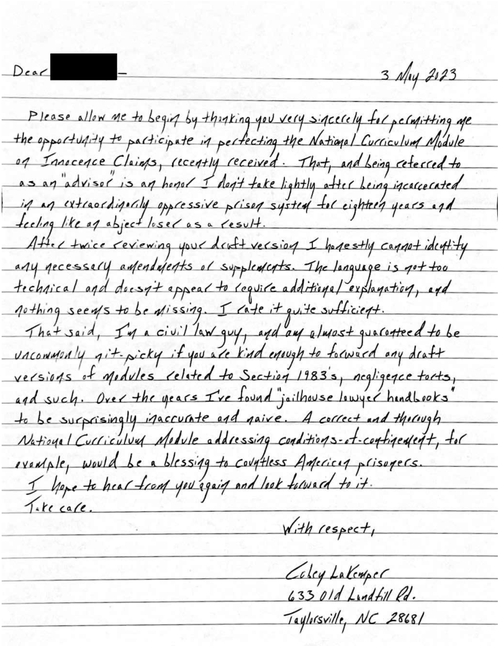 Dear
3 May 2023
Please allow me to begin by thanking you very sincerely for permitting me
the opportunity to participate in perfecting the National Curriculum Module
on Innocence Claims, recently received. That, and being referred to
as an "advisor" is an honor I don't take lightly after being incarcerated
in an extraordinarily oppressive prison system for eighteen years and
feeling like an abject loser as a result.
After twice reviewing your draft version I honestly cannot identify
any necessary amendments or supplements. The language is not too
technical and doesn't appear to require additional explanation, and
nothing seems to be missing. I rate it quite sufficient.
That said, I'm a civil law guy, and am almost guaranteed to be
uncommonly nit-picky if you are kind enough to forward any draft
versions of modules related to Section 1983's, negligence torts,
and such. Over the years I've found "jailhouse lawyer handbooks"
to be surprisingly inaccurate and naive. A correct and thorough
National Curriculum Module addressing conditions-of-confinement, for
example, would be a blessing to countless American prisoners.
I hope to hear from you again and look forward to it.
Take care.
With respect,
Cobey LaKemper
633 Old Landfill Rd.
Taylorsville, NC 28681